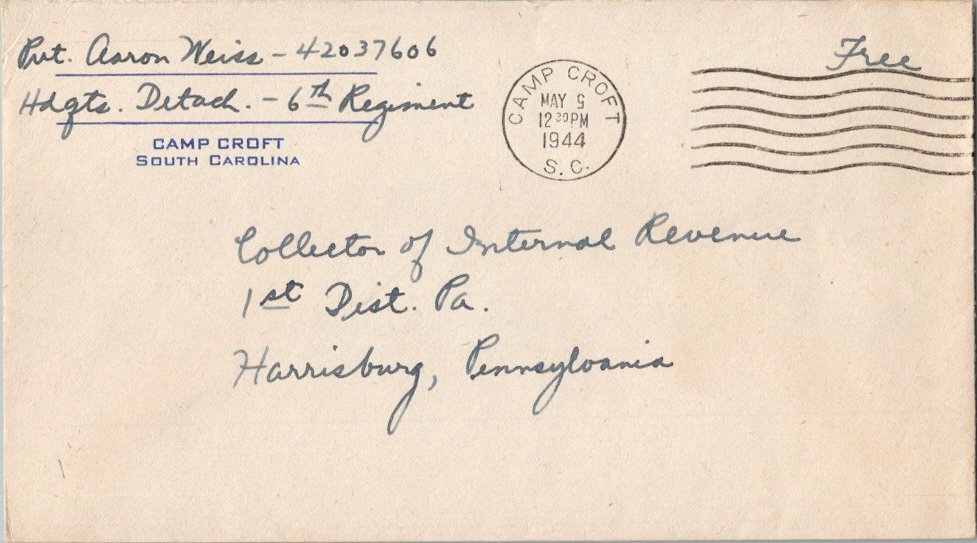 Pvt. Aaron Weiss - 42037606
Hdqts. Detach. - 6th Regiment
CAMP CROFT
SOUTH CAROLINA
CAMP CROFT
MAY 9
12 30 PM
1944
S. C.
Free
Collector of Internal Revenue
1st Dist. Pa.
Harrisburg, Pennsylvania